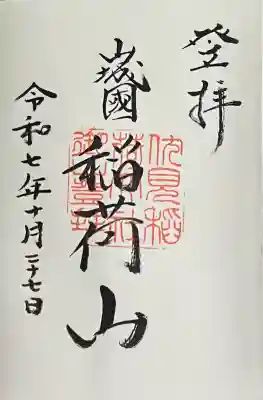 登拝
山城國
稲荷山
伏見稲
令和七年十月二十七日